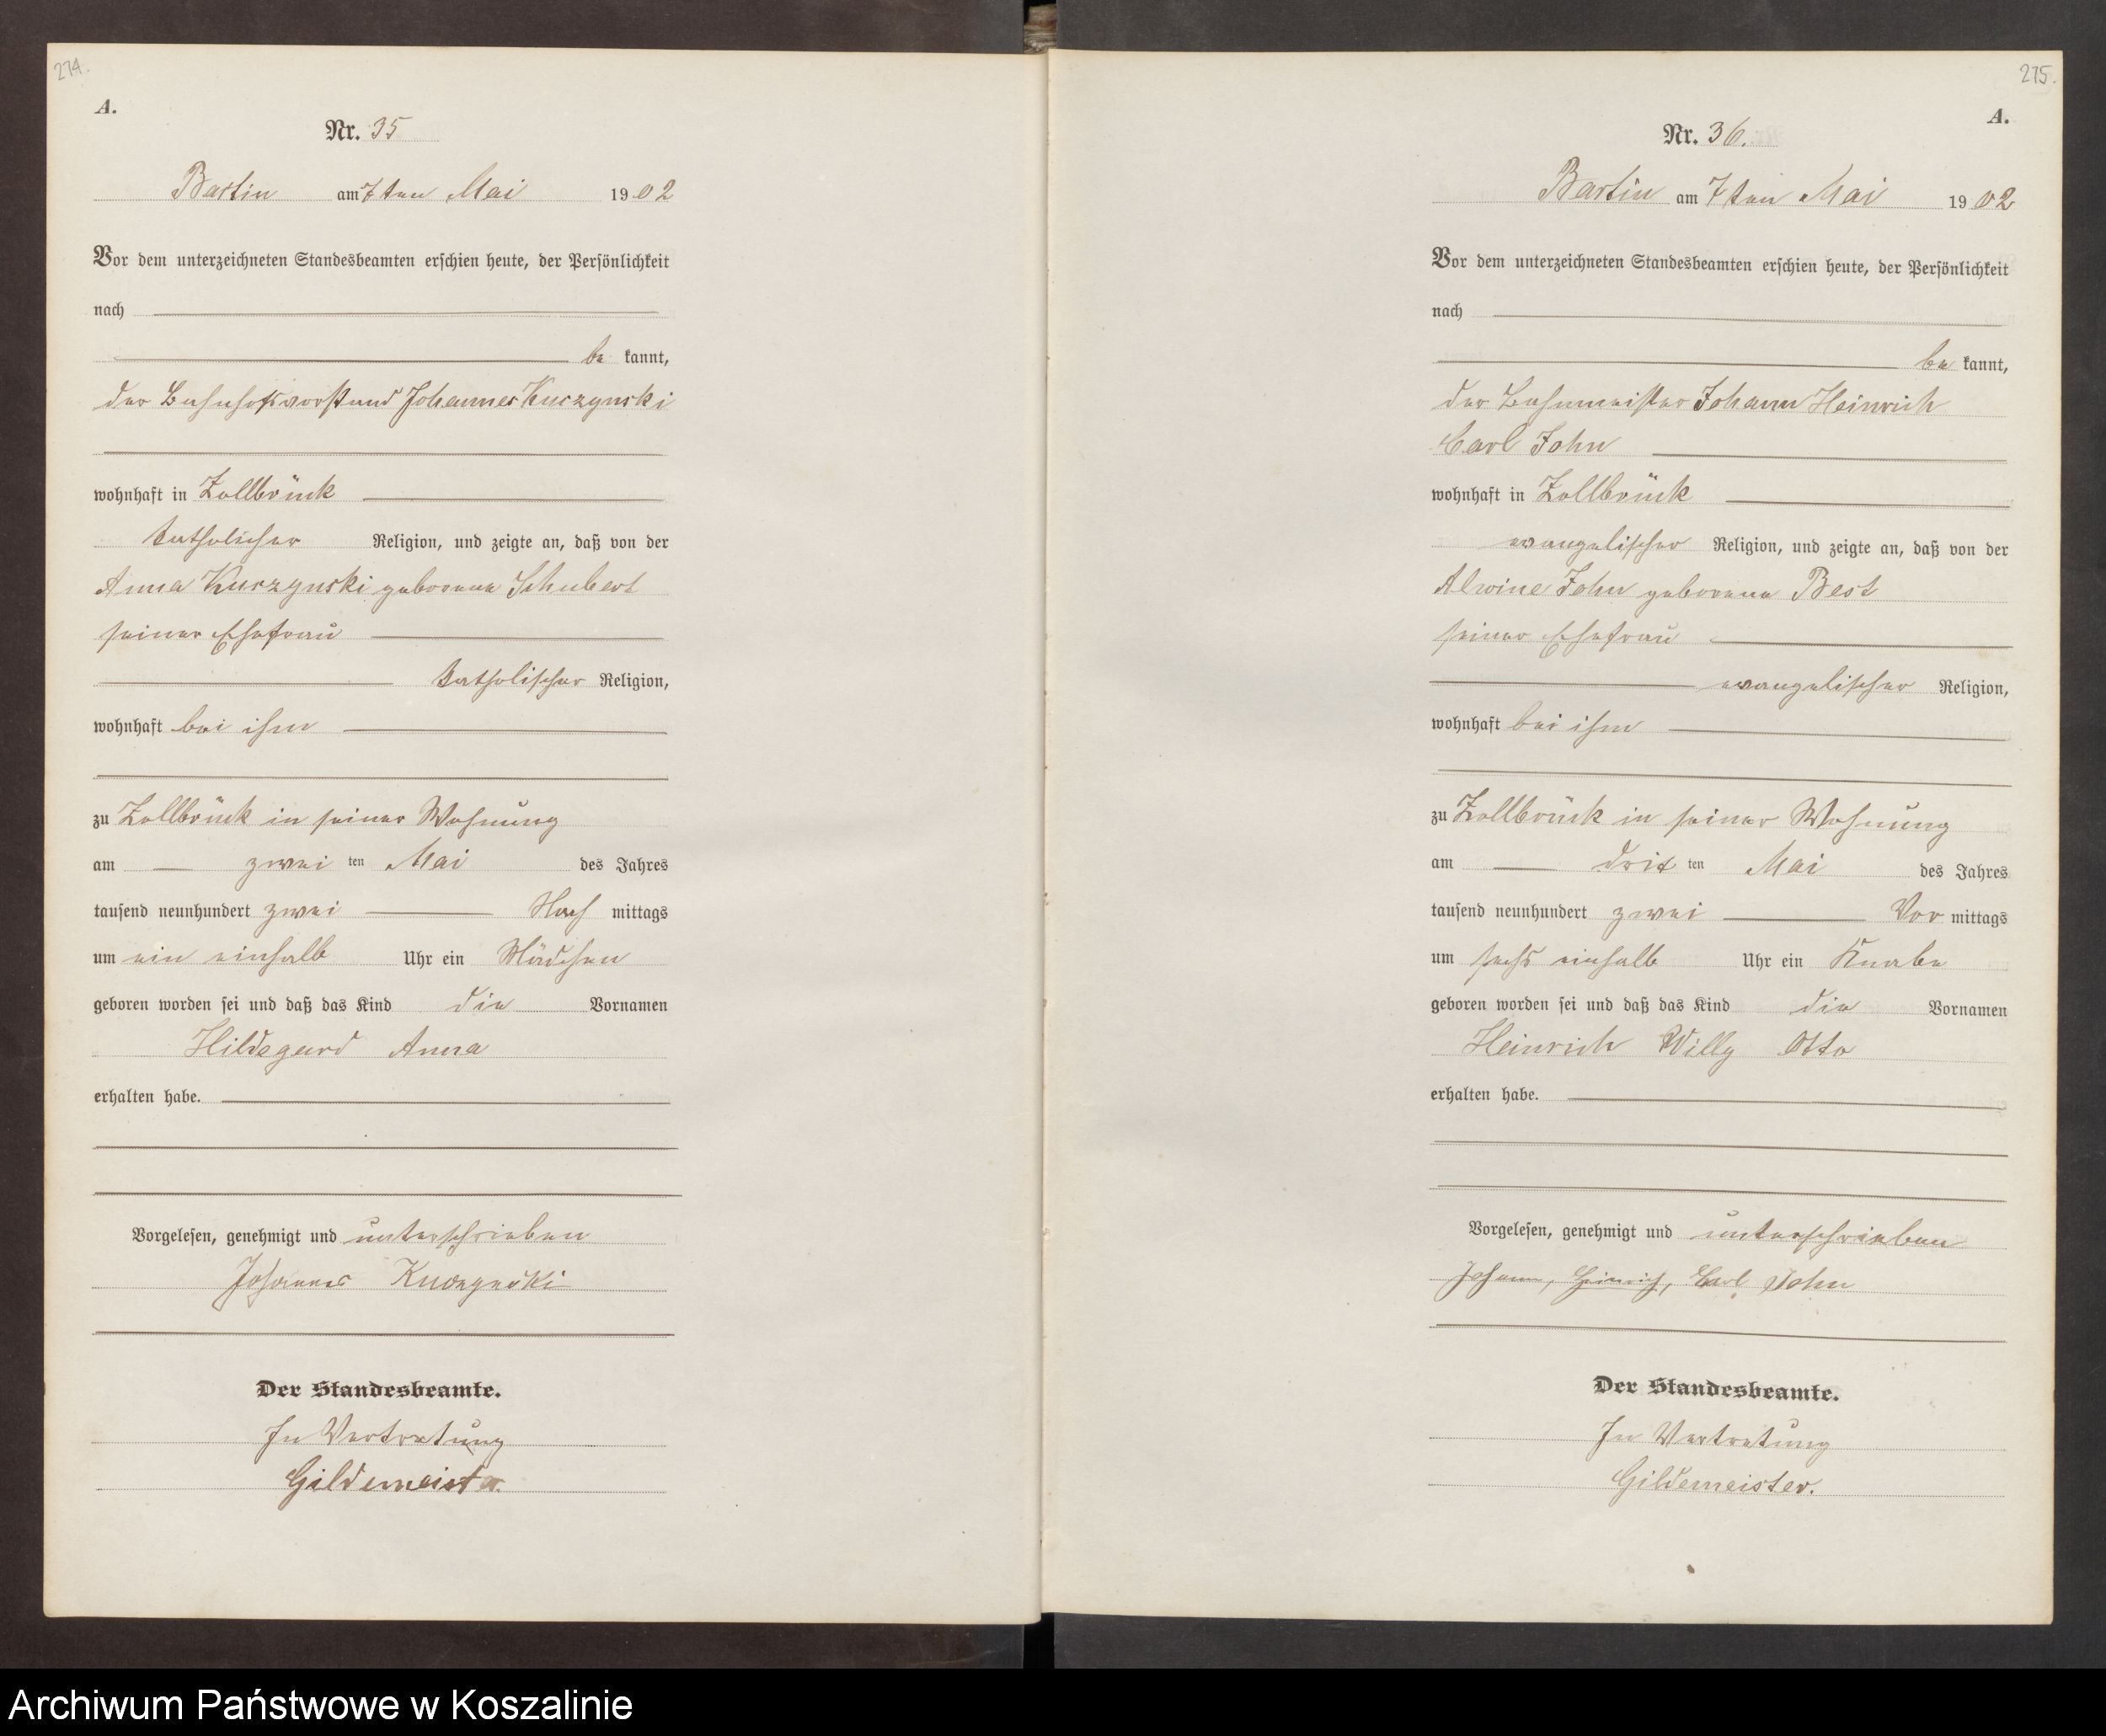 274.
A.
Nr. 35
Bartin am 7ten Mai 1902
Vor dem unterzeichneten Standesbeamten erschien heute, der Persönlichkeit
nach
be kannt,
der Bahnhofsvorstand Johannes Kuczynski
wohnhaft in Zollbrück
katholischer Religion, und zeigte an, daß von der
Anna Kuczynski geborene Schubert
seiner Ehefrau
katholischer Religion,
wohnhaft bei ihm
zu Zollbrück in seiner Wohnung
am zwei ten Mai des Jahres
tausend neunhundert zwei Nach mittags
um ein einhalb Uhr ein Mädchen
geboren worden sei und daß das Kind die Vornamen
Hildegard Anna
erhalten habe.
Vorgelesen, genehmigt und unterschrieben
Johannes Kuczynski
Der Standesbeamte.
In Vertretung
Gildemeister
275.
A.
Nr. 36.
Bartin am 7ten Mai 1902
Vor dem unterzeichneten Standesbeamten erschien heute, der Persönlichkeit
nach
be kannt,
der Bahnmeister Johann Heinrich
Carl John
wohnhaft in Zollbrück
evangelischer Religion, und zeigte an, daß von der
Alwine John geborene Best
seiner Ehefrau
evangelischer Religion,
wohnhaft bei ihm
zu Zollbrück in seiner Wohnung
am drit ten Mai des Jahres
tausend neunhundert zwei Vor mittags
um sechs einhalb Uhr ein Knabe
geboren worden sei und daß das Kind die Vornamen
Heinrich Willy Otto
erhalten habe.
Vorgelesen, genehmigt und unterschrieben
Johann, Heinrich, Carl John
Der Standesbeamte.
In Vertretung
Gildemeister.
Archiwum Państwowe w Koszalinie